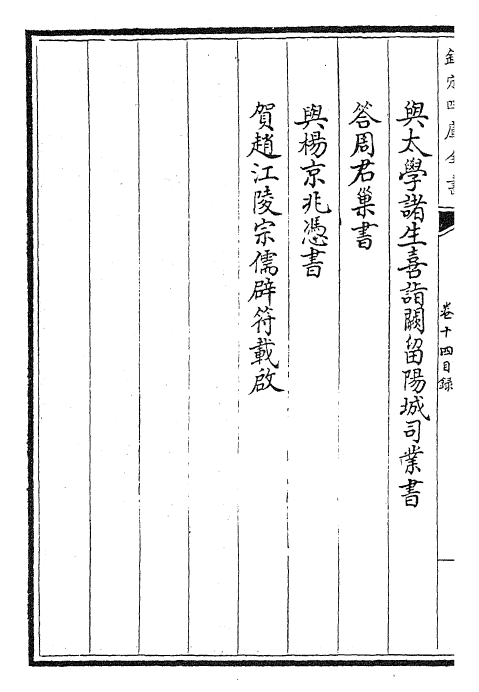 欽定四庫全書
卷十四目錄
與太學諸生喜詣闕留陽城司業書
答周君巢書
與楊京兆憑書
賀趙江陵宗儒辟符載啟